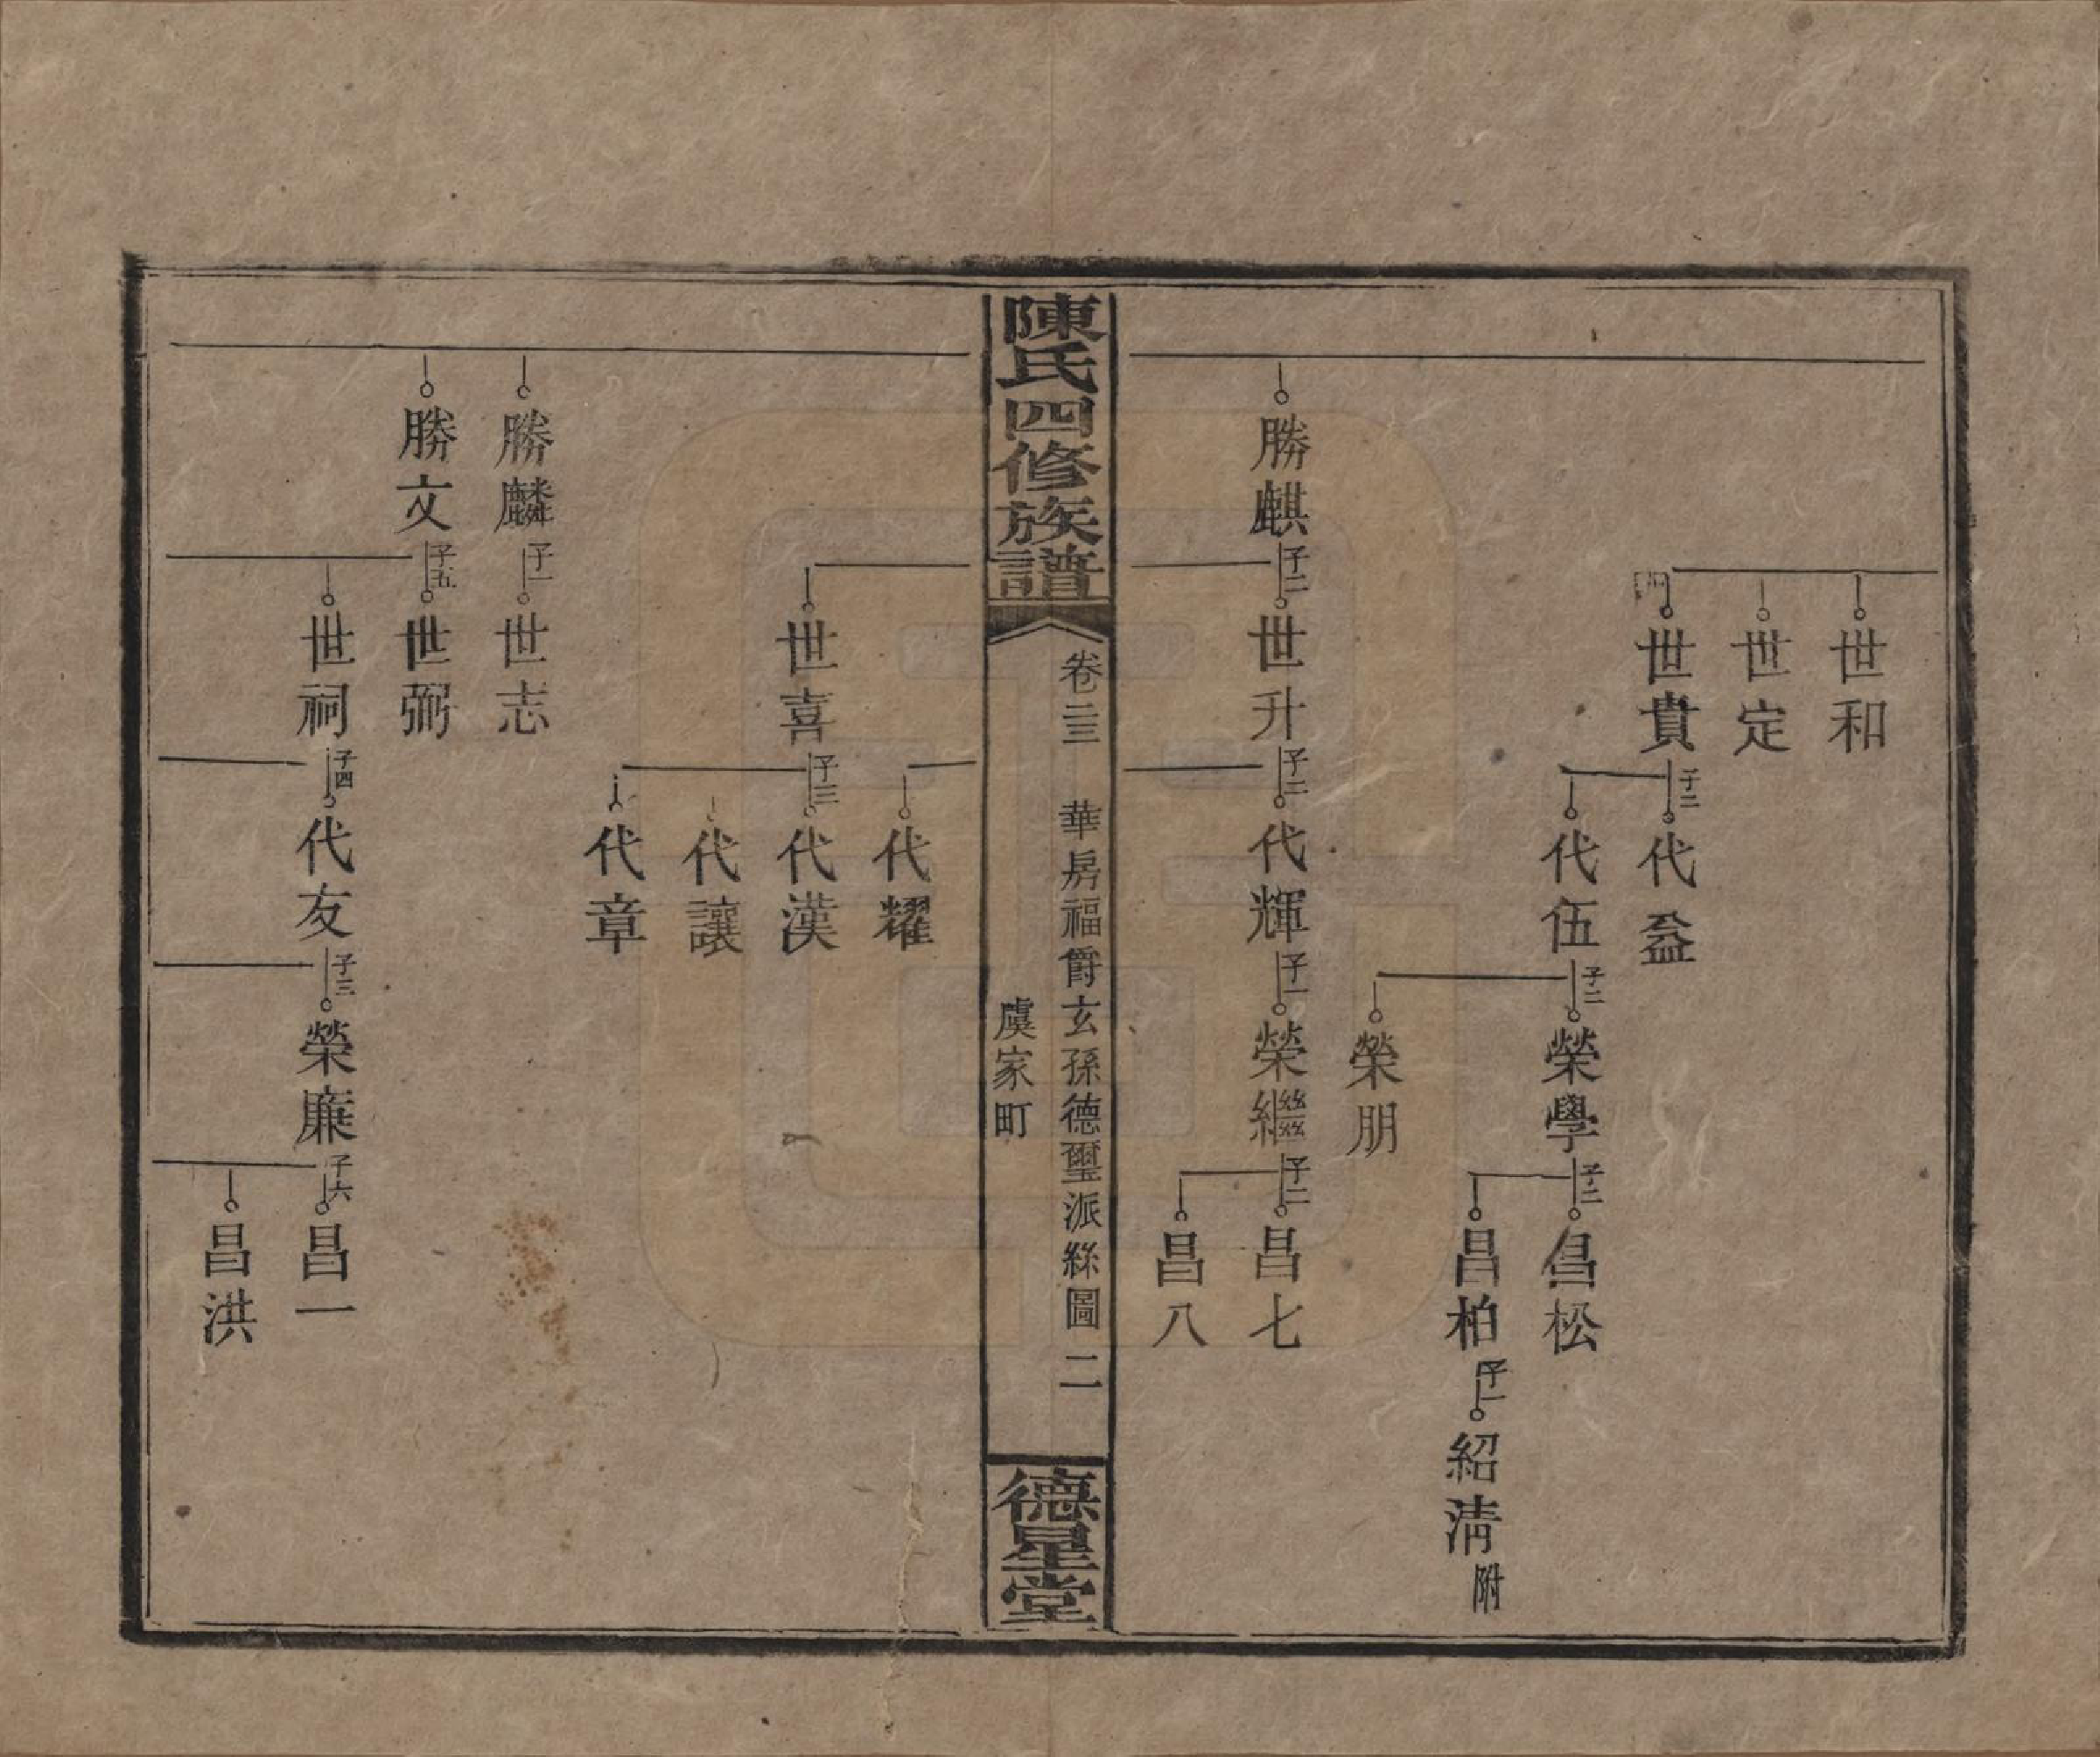 世和
世定
世貴 子二 代益
代伍 子二 榮學 子二 昌松
昌柏 子一 紹清 附
榮朋
勝麒 子二 世升 子二 代輝 子一 榮繼 子二 昌七
昌八
陳氏四修族譜
卷二三 華房福爵玄孫德璽派絲圖 二
虞家町
德星堂
代耀
世喜 子三 代漢
代讓
代章
勝麟 子一 世志
勝文 子五 世弼
世祠 子四 代友 子三 榮廉 子六 昌一
昌洪